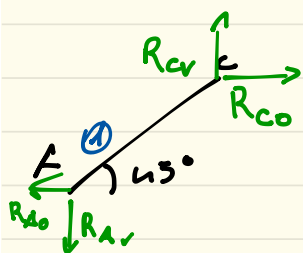 R_cv
C
R_co
1
A
45°
R_Ao
R_Av